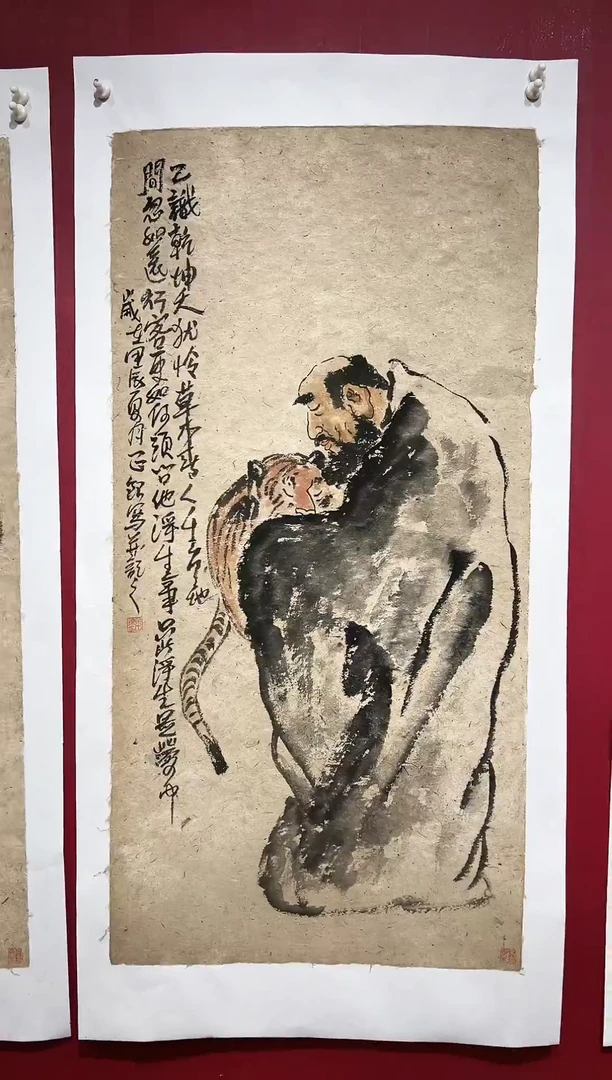 已識乾坤大猶憐草木青人生天地
間忽如遠行客更如何須問他浮生事只此浮生是夢中
歲在甲辰夏月正寫並記之